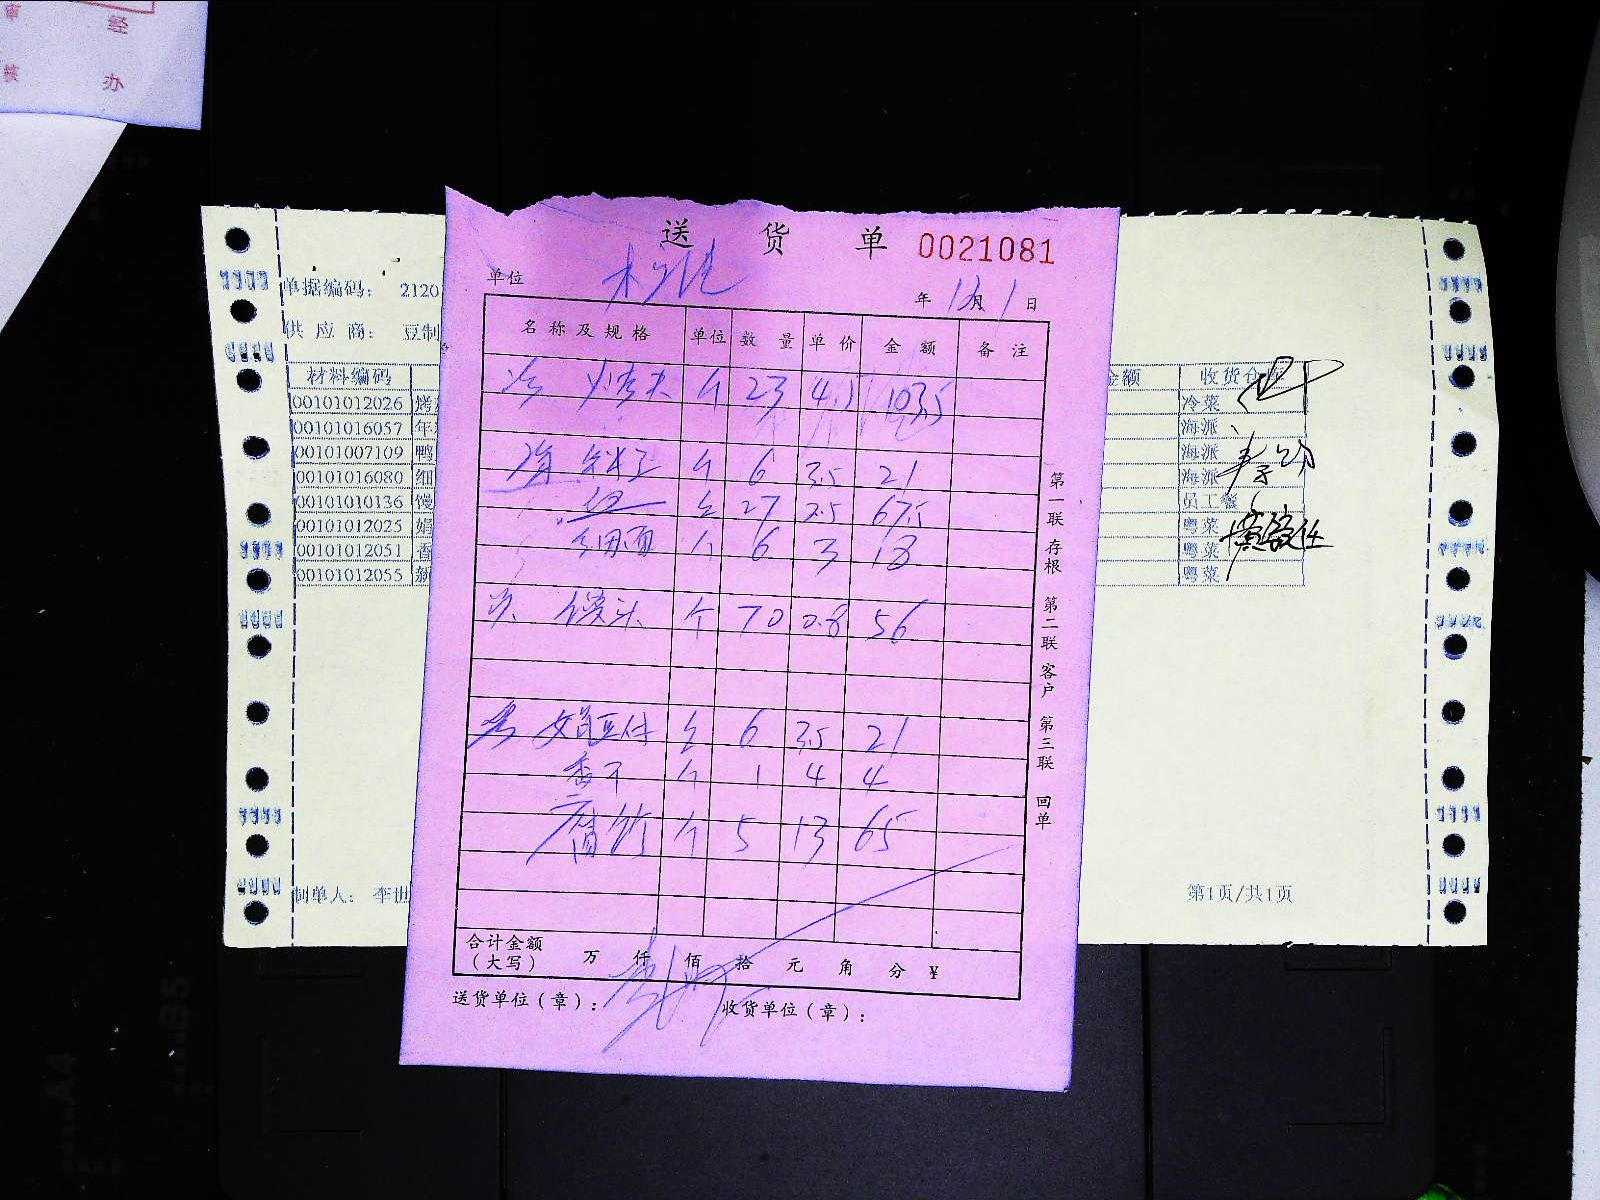 经
办
送 货 单 0021081
单位
年 12月 1 日
名称及规格 单位 数量 单价 金额 备注
个 23 4.5 103.5
个 6 3.5 21
27 2.5 67.5
个 6 3 18
馒头 个 70 0.8 56
娟豆付 6 3.5 21
香干 个 1 4 4
腐竹 个 5 13 65
合计金额
(大写) 万 仟 佰 拾 元 角 分 ¥
送货单位(章): 收货单位(章):
第一联 存根 第二联 客户 第三联 回单
单据编码: 2120
供应商: 豆制
材料编码 金额 收货仓库
00101012026 烤 冷菜
00101016057 年 海派
00101007109 鸭 海派
00101016080 细 海派
00101010136 馒 员工餐
00101012025 娟 粤菜
00101012051 香 粤菜
00101012055 新 粤菜
制单人: 李世
第1页/共1页